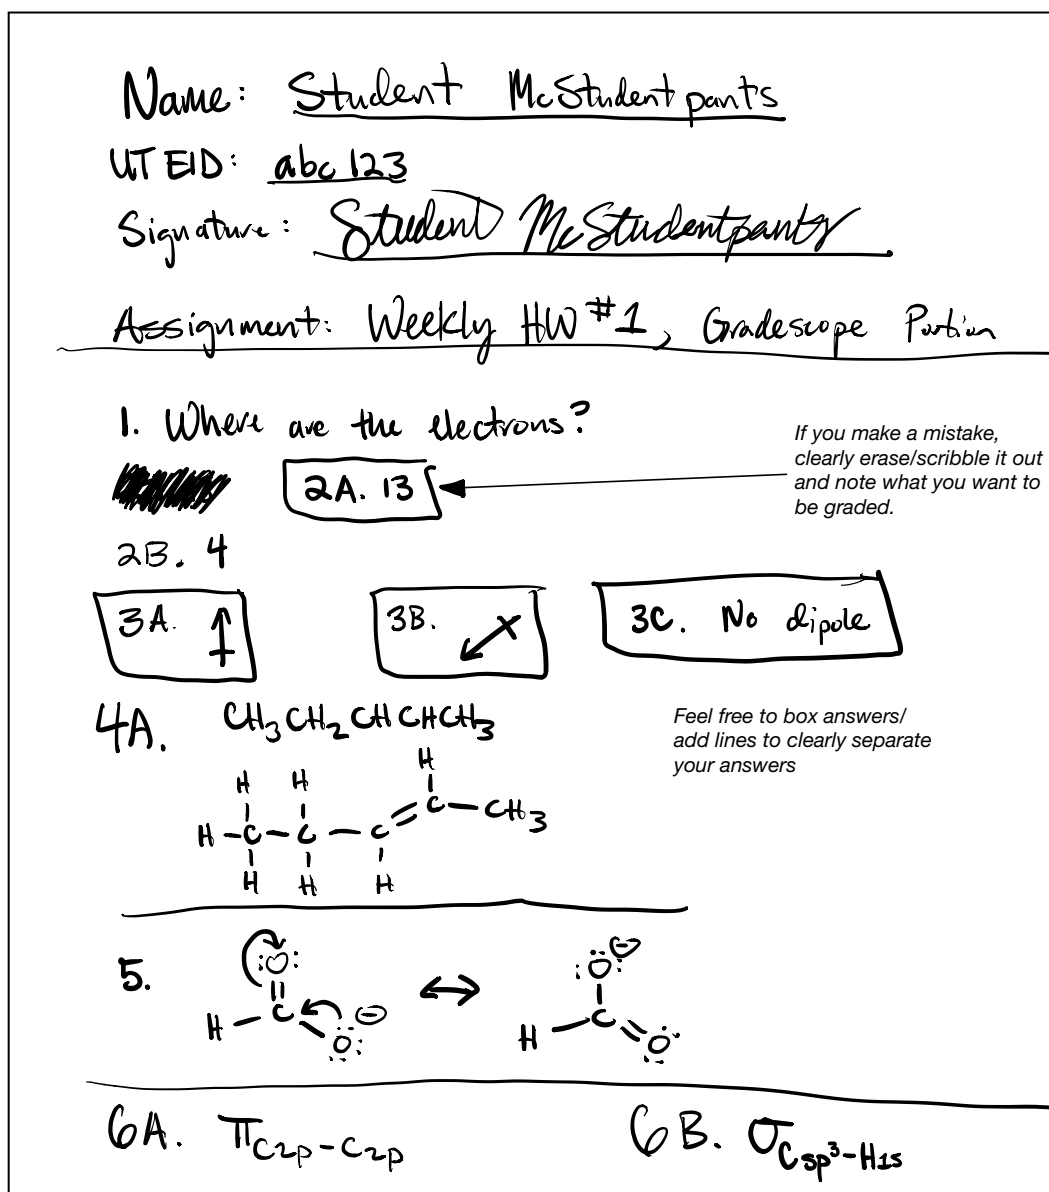 Name: Student McStudentpants
UT EID: abc123
Signature: Student McStudentpants
Assignment: Weekly HW #1, Gradescope Portion
1. Where are the electrons?
2A. 13
If you make a mistake,
clearly erase/scribble it out
and note what you want to
be graded.
2B. 4
3A.
3B.
3C. No dipole
4A. CH₃CH₂CHCHCH₃
Feel free to box answers/
add lines to clearly separate
your answers
H
H H
H-C-C-C=C-CH₃
H H H
5.
:O: :O:⊖
H-C ↔ H-C
O: ⊖ O:
6A. πC2p-C2p
6B. σCsp³-H1s